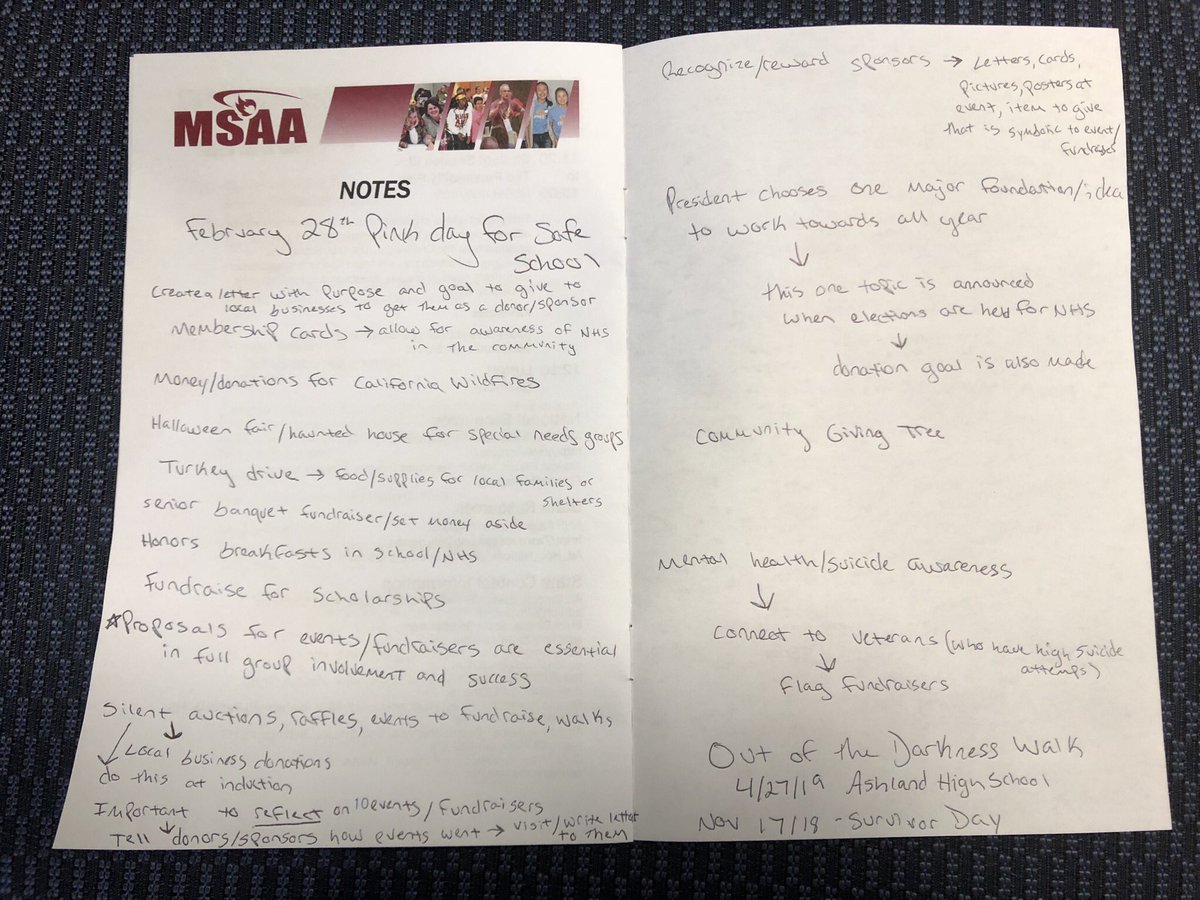 MSAA
NOTES
February 28th Pink day for Safe
School
Create a letter with purpose and goal to give to
local businesses to get them as a donor/sponsor
Membership Cards → allow for awareness of NHS
in the community
Money/donations for California Wildfires
Halloween fair/haunted house for special needs groups
Turkey drive → food/supplies for local families or
shelters
senior banquet fundraiser/set money aside
Honors breakfasts in school/NHS
Fundraise for scholarships
☆Proposals for events/fundraisers are essential
in full group involvement and success
Silent auctions, raffles, events to fundraise, walks
↓ Local business donations
↓ do this at induction
Important to reflect on 10 events/fundraisers
↓
Tell donors/sponsors how events went → visit/write letter
to them
Recognize/reward sponsors → Letters, cards,
pictures, posters at
event, item to give
that is symbolic to event/
fundraiser
President chooses one major foundation/idea
to work towards all year
↓
this one topic is announced
when elections are held for NHS
↓
donation goal is also made
Community Giving Tree
Mental health/suicide awareness
↓
Connect to veterans (who have high suicide
attemps)
↓
Flag fundraisers
Out of the Darkness Walk
4/27/19 Ashland High School
Nov 17/18 - Survivor Day